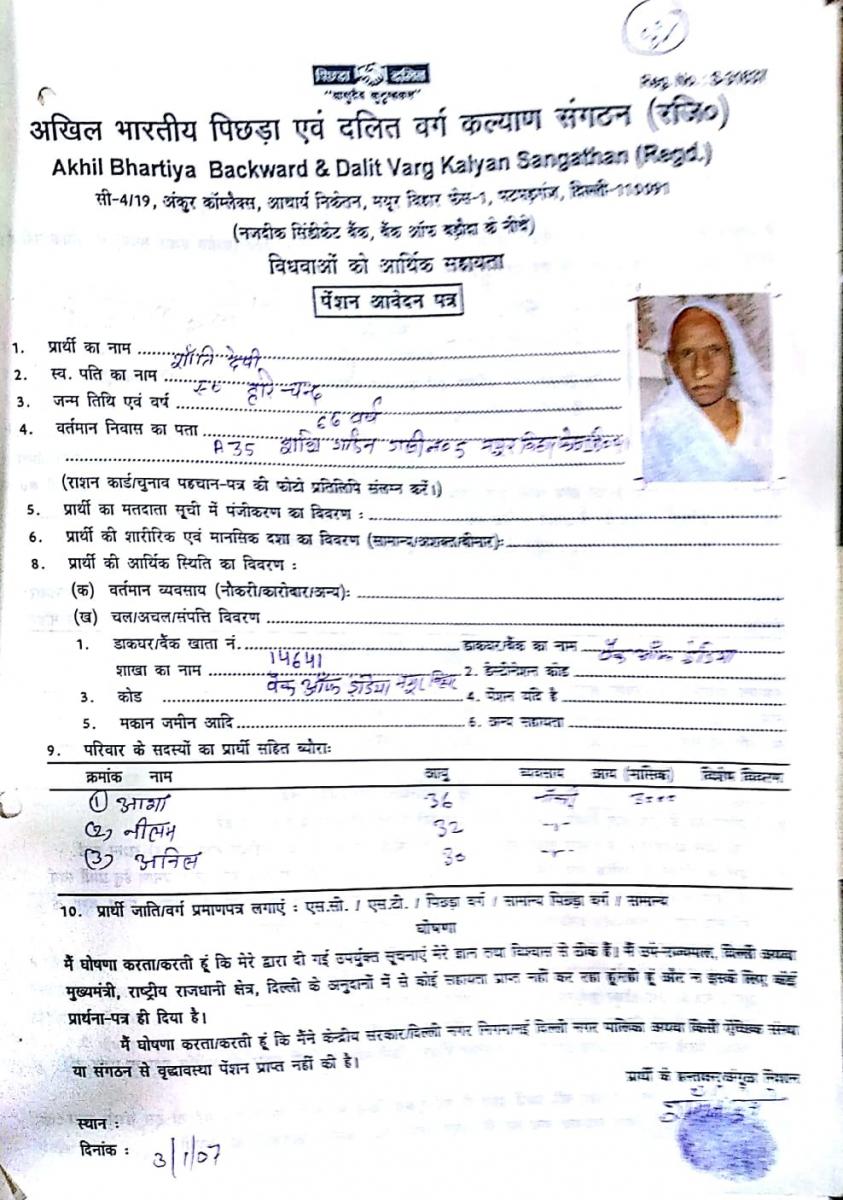 पिछड़ा दलित
"वासुदेव कुटुम्बकम"
Reg. No.
अखिल भारतीय पिछड़ा एवं दलित वर्ग कल्याण संगठन (रजि०)
Akhil Bhartiya Backward & Dalit Varg Kalyan Sangathan (Regd.)
सी-4/19, अंकुर कॉम्लैक्स, आचार्य निकेतन, मयूर विहार फेस-1, पटपड़गंज, दिल्ली-110091
(नजदीक सिंडीकेट बैंक, बैंक ऑफ बड़ौदा के नीचे)
विधवाओं को आर्थिक सहायता
पेंशन आवेदन पत्र
1. प्रार्थी का नाम शान्ति देवी
2. स्व. पति का नाम स्व हरि चन्द
3. जन्म तिथि एवं वर्ष 66 वर्ष
4. वर्तमान निवास का पता A 35 गार्डन गली न० 5 मयूर विहार
(राशन कार्ड/चुनाव पहचान-पत्र की फोटो प्रतिलिपि संलग्न करें।)
5. प्रार्थी का मतदाता सूची में पंजीकरण का विवरण :
6. प्रार्थी की शारीरिक एवं मानसिक दशा का विवरण (सामान्य/अशक्त/बीमार):
8. प्रार्थी की आर्थिक स्थिति का विवरण :
(क) वर्तमान व्यवसाय (नौकरी/कारोबार/अन्य):
(ख) चल/अचल/संपत्ति विवरण
1. डाकघर/बैंक खाता नं. 14641 डाकघर/बैंक का नाम बैंक ऑफ इंडिया
शाखा का नाम बैंक ऑफ इंडिया मयूर विहार 2. डेस्टीनेशन कोड
3. कोड 4. पेंशन यदि है
5. मकान जमीन आदि 6. अन्य सहायता
9. परिवार के सदस्यों का प्रार्थी सहित ब्यौराः
क्रमांक नाम आयु व्यवसाय आय (मासिक) विशेष विवरण
(1) आशा 36 3000
(2) नीलम 32
(3) अनिल 30
10. प्रार्थी जाति/वर्ग प्रमाणपत्र लगाएं : एस.सी. / एस.टी. / पिछड़ा वर्ग / सामान्य पिछड़ा वर्ग / सामान्य
घोषणा
मैं घोषणा करता/करती हूं कि मेरे द्वारा दी गई उपर्युक्त सूचनाएं मेरे ज्ञान तथा विश्वास से ठीक हैं। मैं उपराज्यपाल, दिल्ली अथवा
मुख्यमंत्री, राष्ट्रीय राजधानी क्षेत्र, दिल्ली के अनुदानों में से कोई सहायता प्राप्त नहीं कर रहा हूं/रही हूं और न इसके लिए कोई
प्रार्थना-पत्र ही दिया है।
मैं घोषणा करता/करती हूं कि मैंने केंद्रीय सरकार/दिल्ली नगर निगम/नई दिल्ली नगर पालिका अथवा किसी संस्था
या संगठन से वृद्धावस्था पेंशन प्राप्त नहीं की है।
प्रार्थी के हस्ताक्षर/अंगूठा निशान
स्थान :
दिनांक : 3/1/07